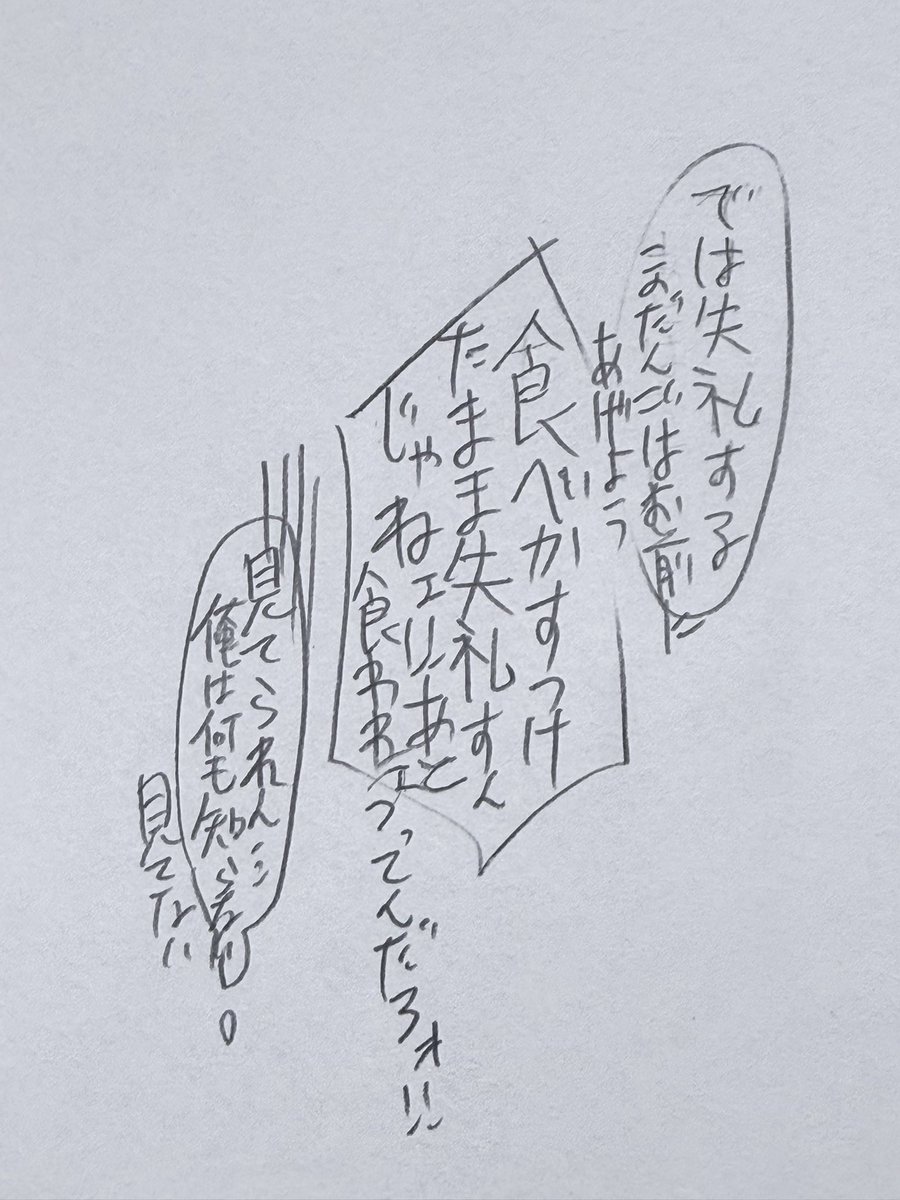 では失礼する
このだんごはお前に
あげよう
食べかすつけ
たまま失礼すん
じゃねェ!!あと
食わねェってんだろォ!!
見てられん…
俺は何も知らない。
見てない